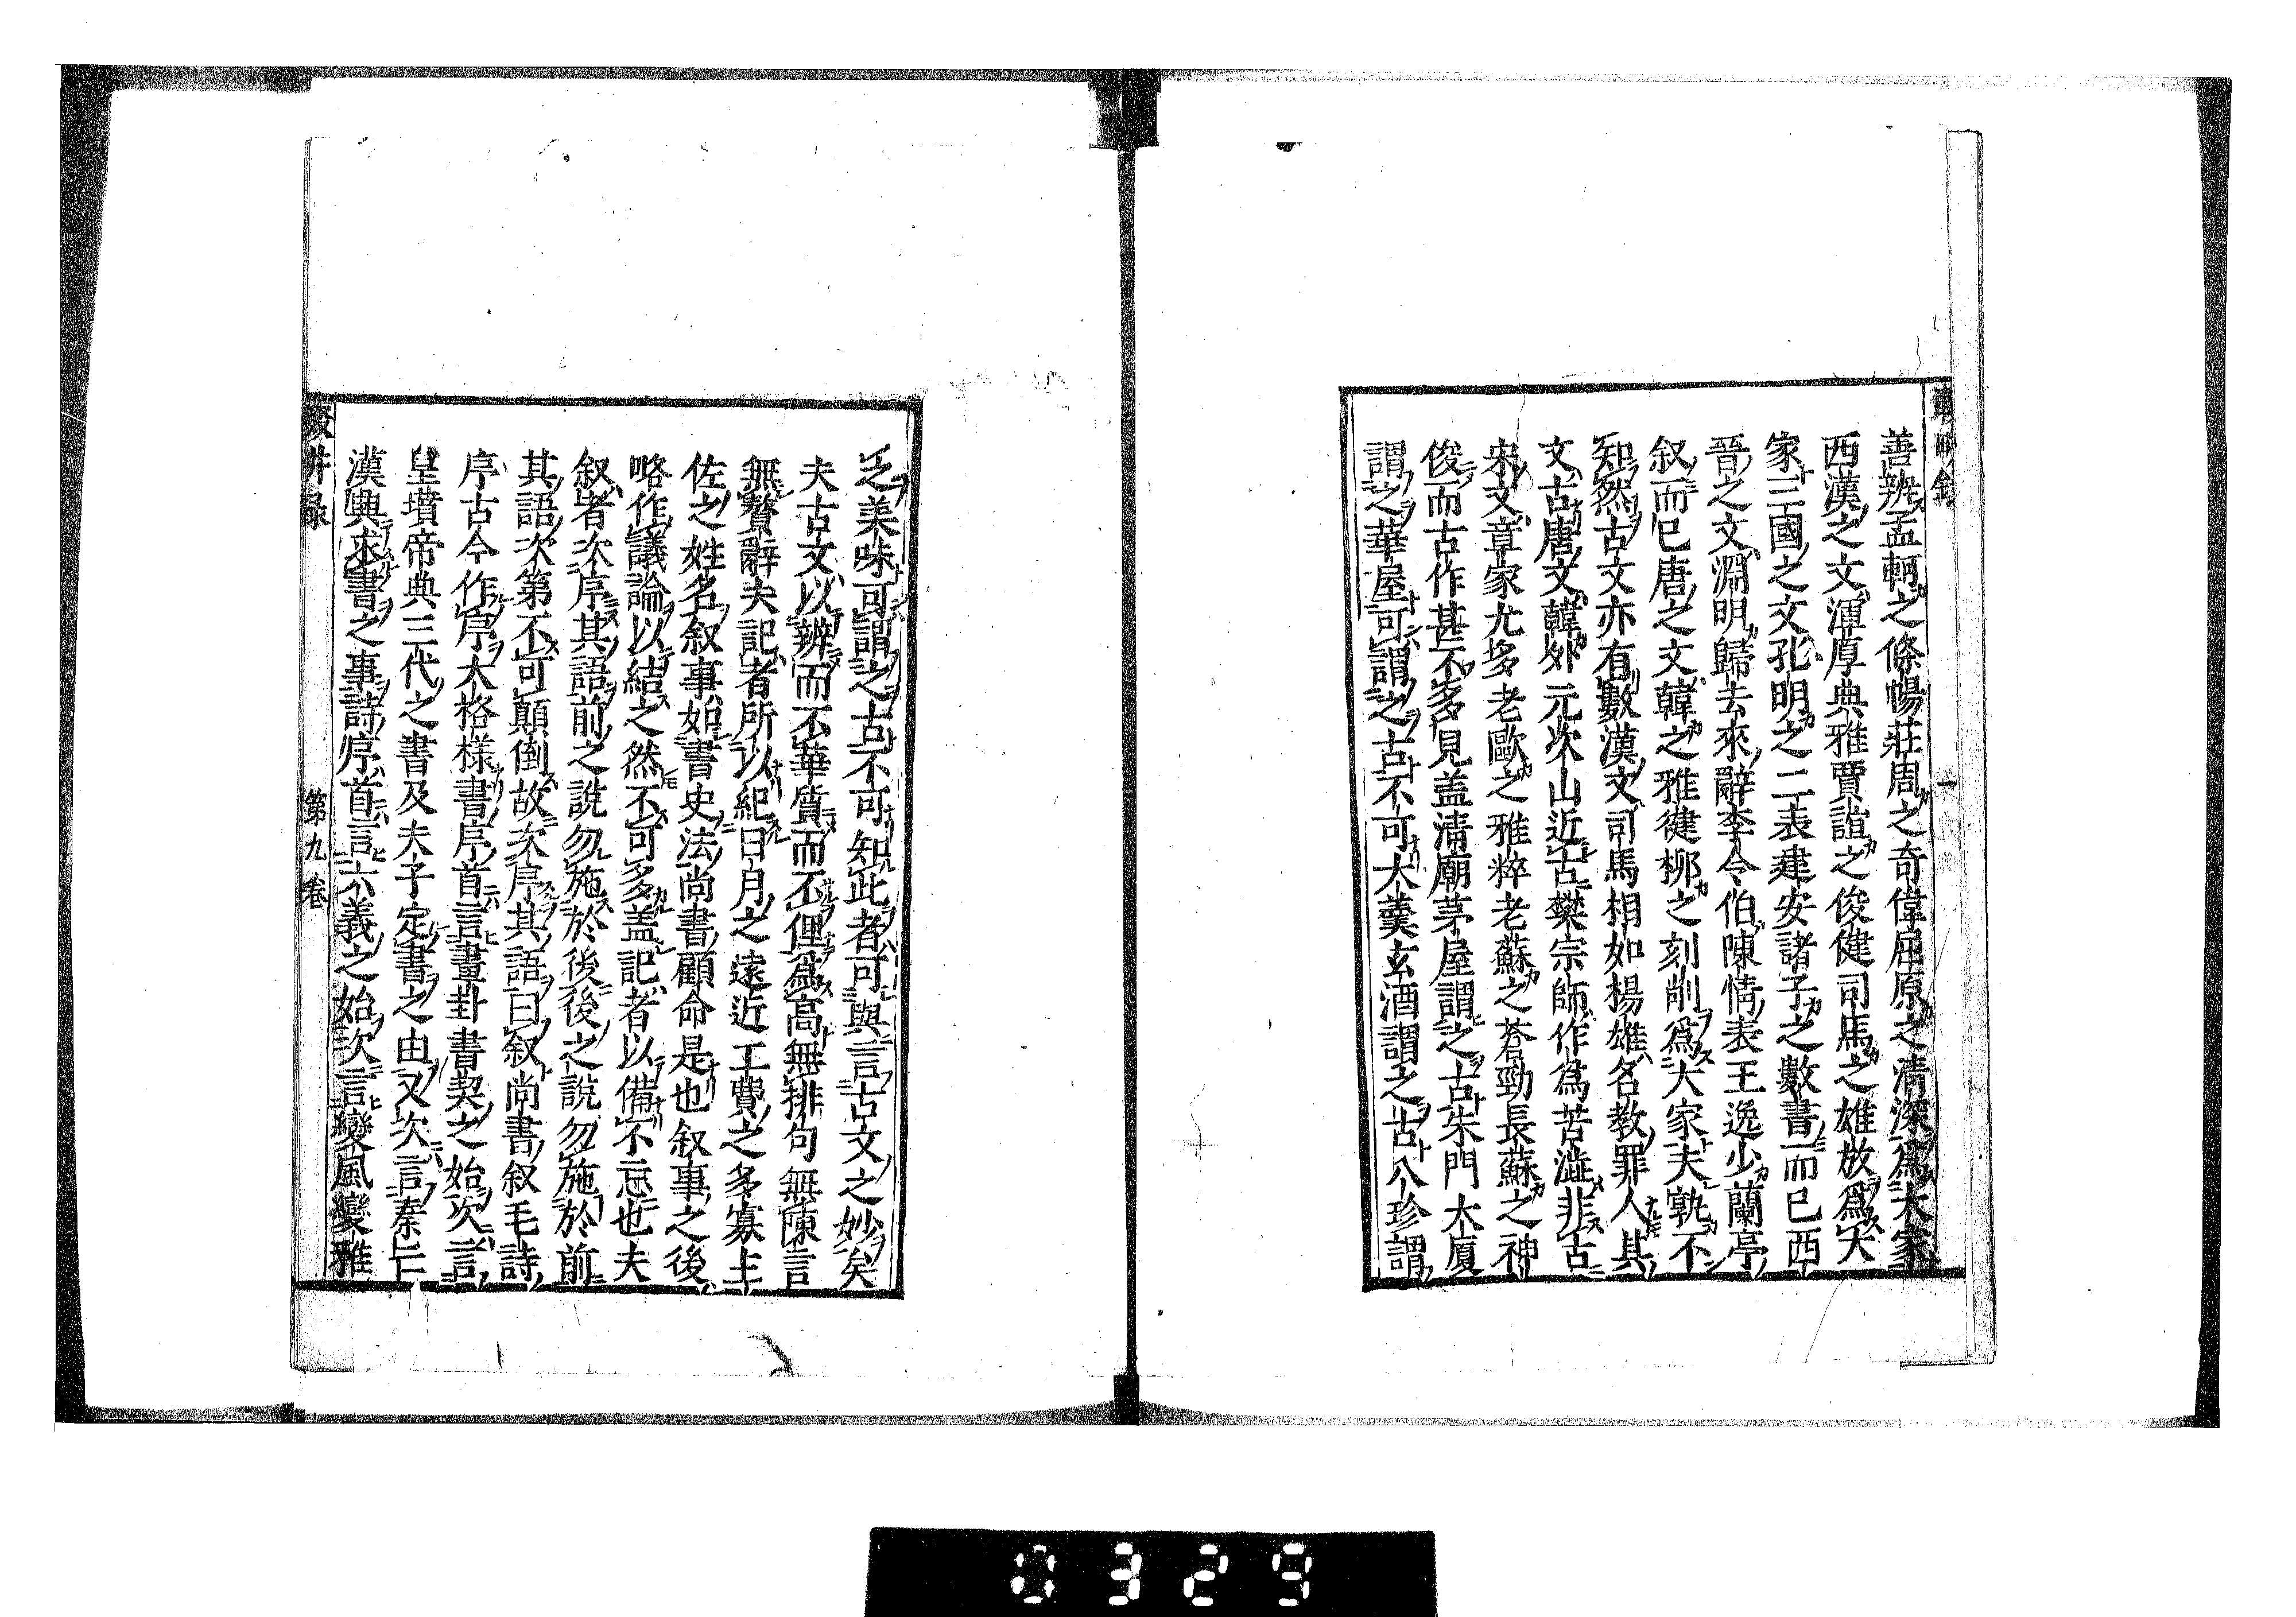 善辨孟軻之條暢莊周之奇偉屈原之清深爲大家
西漢之文渾厚典雅賈誼之俊健司馬之雄放爲大
家三國之文孔明之二表建安諸子之數書而已西
晉之文淵明歸去來辭李令伯陳情表王逸少蘭亭
叙而已唐之文韓之雅健柳之刻削爲大家夫孰不
知然古文亦有數漢文司馬相如楊雄名教罪人其
文古唐文韓外元次山近古樊宗師作爲苦澁非古
宋文章家尤多老歐之雅粹老蘇之蒼勁長蘇之神
俊而古作甚不多見盖清廟茅屋謂之古朱門大厦
謂之華屋可謂之古不可大羹玄酒謂之古八珍謂
之美味可謂之古不可知此者可與言古文之妙矣
夫古文以辨而不華質而不俚爲高無排句無陳言
無贅辭夫記者所以紀日月之遠近工費之多寡主
佐之姓名叙事如書史法尚書顧命是也叙事之後
略作議論以結之然不可多盖記者以備不忘也夫
叙者次序其語前之說勿施於後後之說勿施於前
其語次第不可顛倒故次序其語曰叙尚書叙毛詩
序古今作序大格樣書序首言畫卦書契之始次言
皇墳帝典三代之書及夫子定書之由又次言秦亡
漢興求書之事詩序首言六義之始次言變風變雅
輟耕録
第九卷